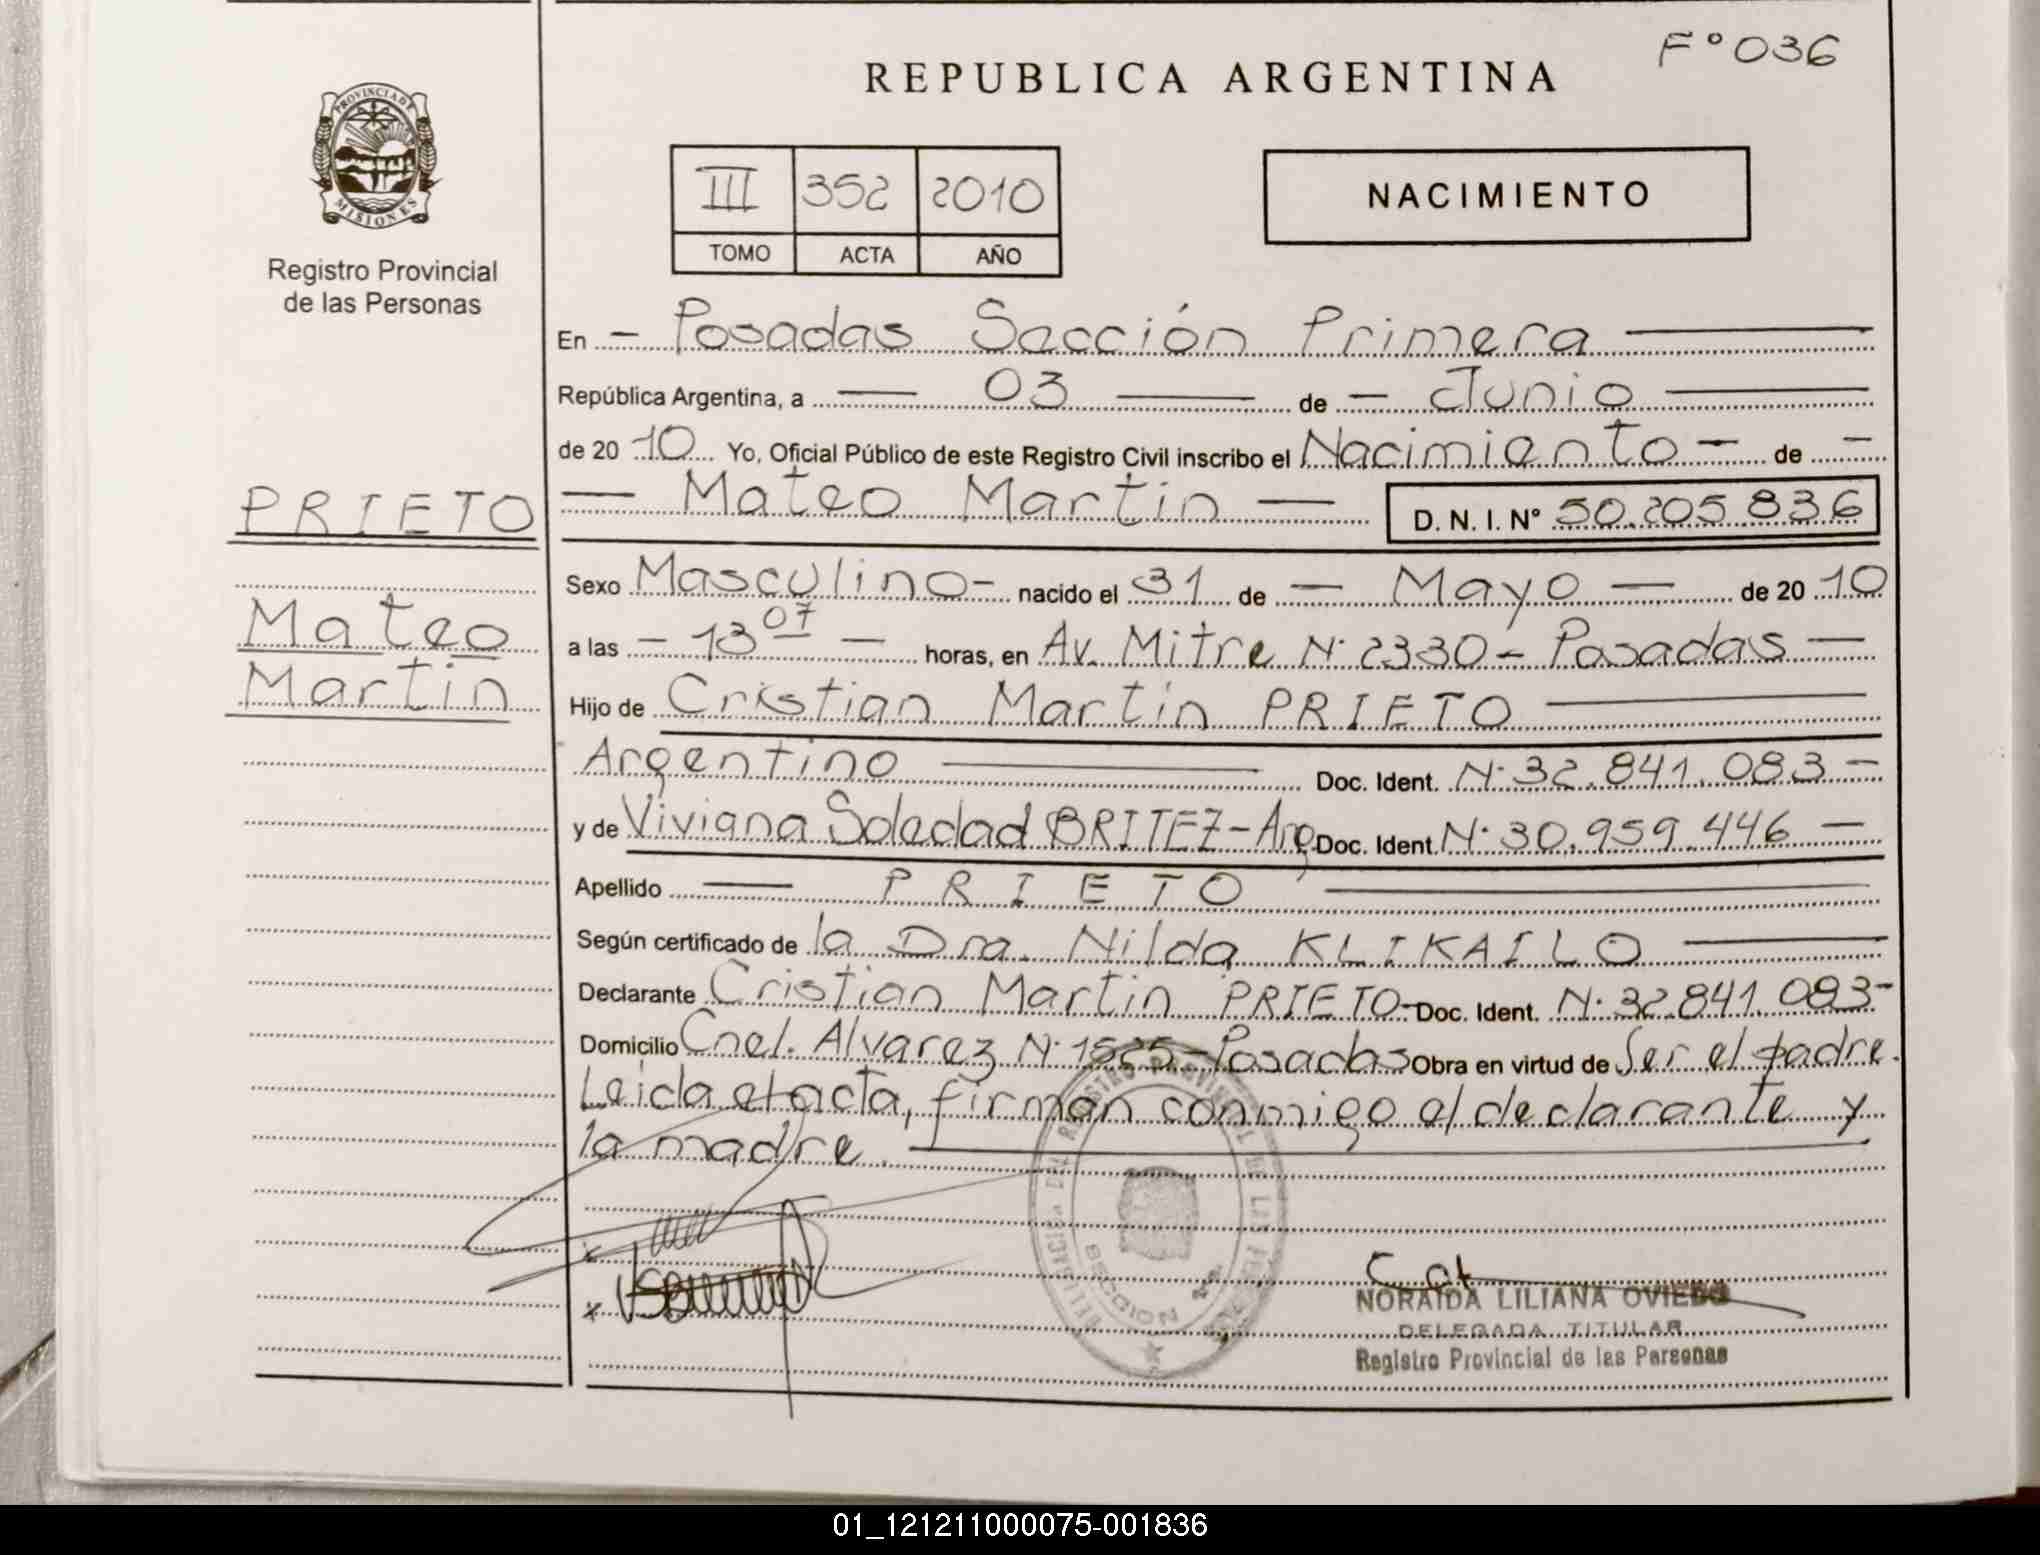 F° 036
REPUBLICA ARGENTINA
PROVINCIA DE
MISIONES
Registro Provincial
de las Personas
III 352 2010
TOMO ACTA AÑO
NACIMIENTO
En - Posadas Sección Primera
República Argentina, a - 03 - de - Junio
de 20 10 Yo, Oficial Público de este Registro Civil inscribo el Nacimiento - de -
PRIETO
Mateo
Martin
- Mateo Martin - D. N. I. N° 50.205.836
Sexo Masculino - nacido el 31 de - Mayo - de 20 10
a las - 13 07 - horas, en Av. Mitre N° 2330 - Posadas -
Hijo de Cristian Martin PRIETO
Argentino Doc. Ident. N° 32.841.083 -
y de Viviana Soledad BRITEZ - Arg. Doc. Ident. N° 30.959.446 -
Apellido - PRIETO
Según certificado de la Dra. Nilda KLIKAILO
Declarante Cristian Martin PRIETO - Doc. Ident. N° 32.841.083 -
Domicilio Cnel. Alvarez N° - Posadas Obra en virtud de Ser el padre.
Leida el acta, firman conmigo el declarante y
la madre.
NORAIDA LILIANA OVIEDO
DELEGADA TITULAR
Registro Provincial de las Personas
01_121211000075-001836